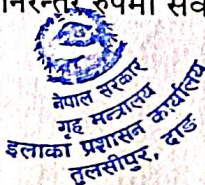 निरन्तर रुपमा सर्व
नेपाल सरकार
गृह मन्त्रालय
इलाका प्रशासन कार्यालय
तुलसीपुर, दाङ